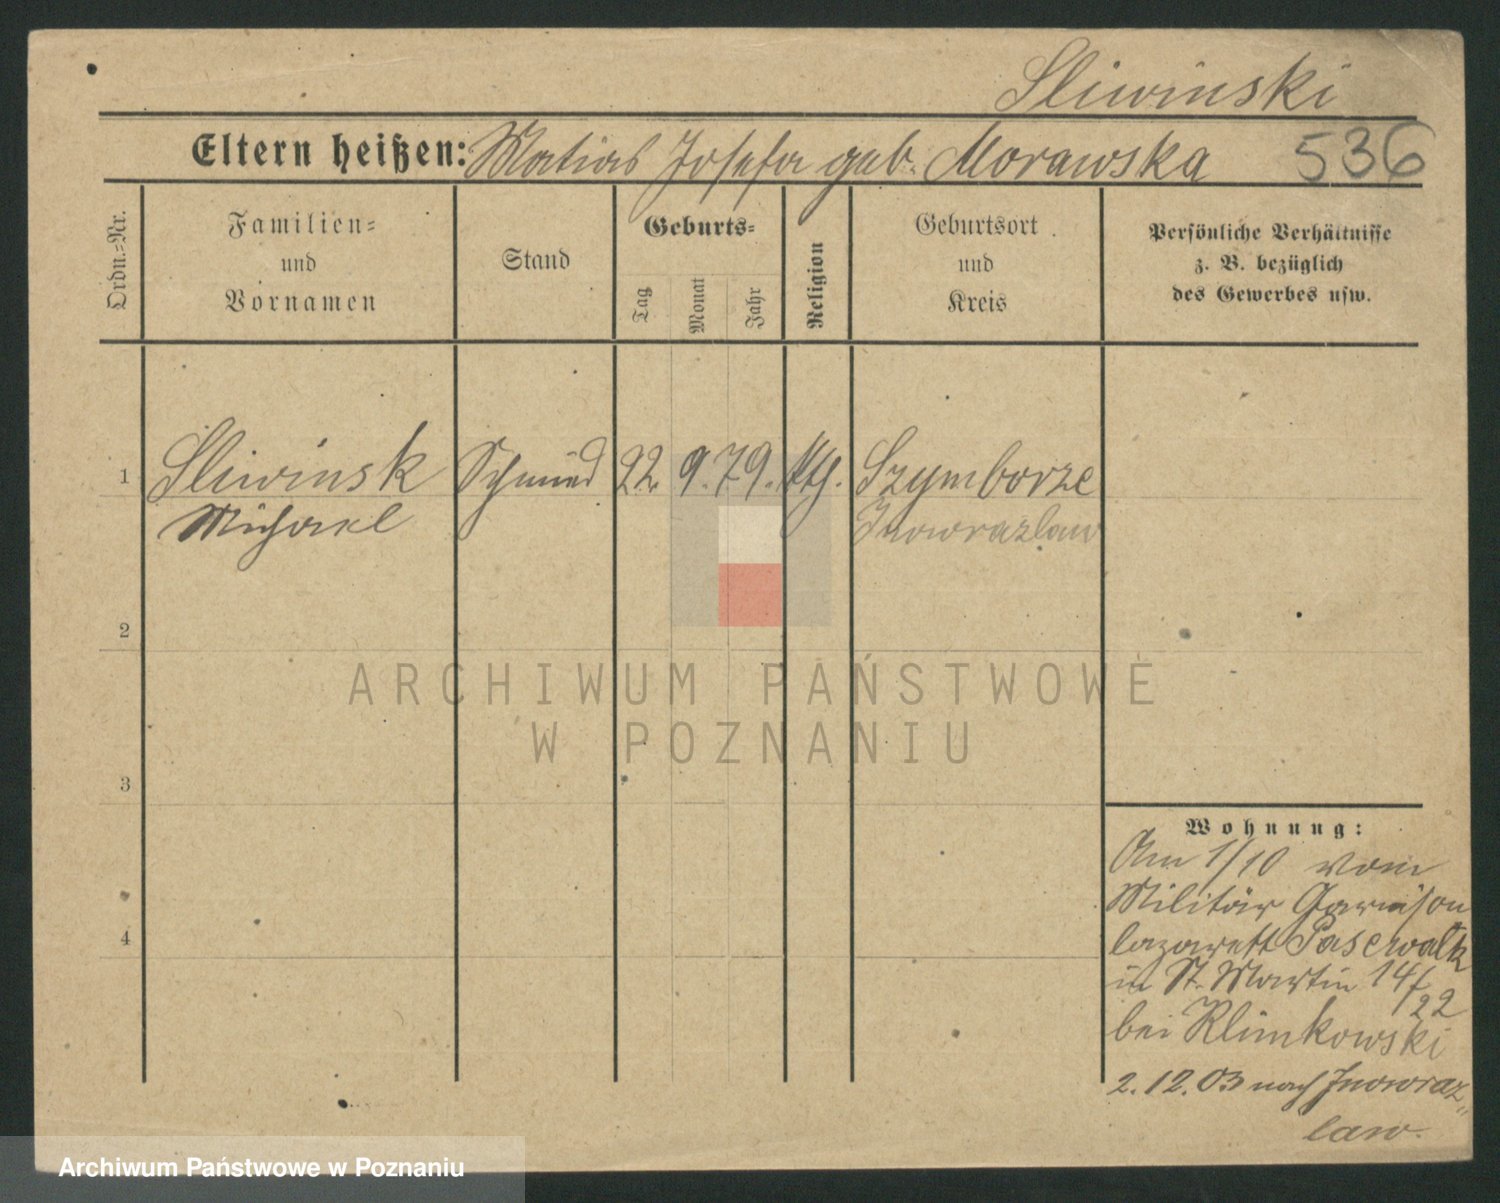 Sliwinski
Eltern heißen: Matias Josefa geb. Morawska 536
Ordn.=Nr.
Familien=
und
Vornamen
Stand
Geburts=
Tag
Monat
Jahr
Religion
Geburtsort
und
Kreis
Persönliche Verhältnisse
z. B. bezüglich
des Gewerbes usw.
1 Sliwinsk Schmied 22. 9. 79. kth. Szymborze
Michael Inowrazlaw
2
3
4
Wohnung:
Am 1/10 vom
Militär Garnison
lazarett Pasewalk
in St. Martin 14/22
bei Klimkowski
2. 12. 03 nach Inowraz„
law.
ARCHIWUM PAŃSTWOWE
W POZNANIU
Archiwum Państwowe w Poznaniu